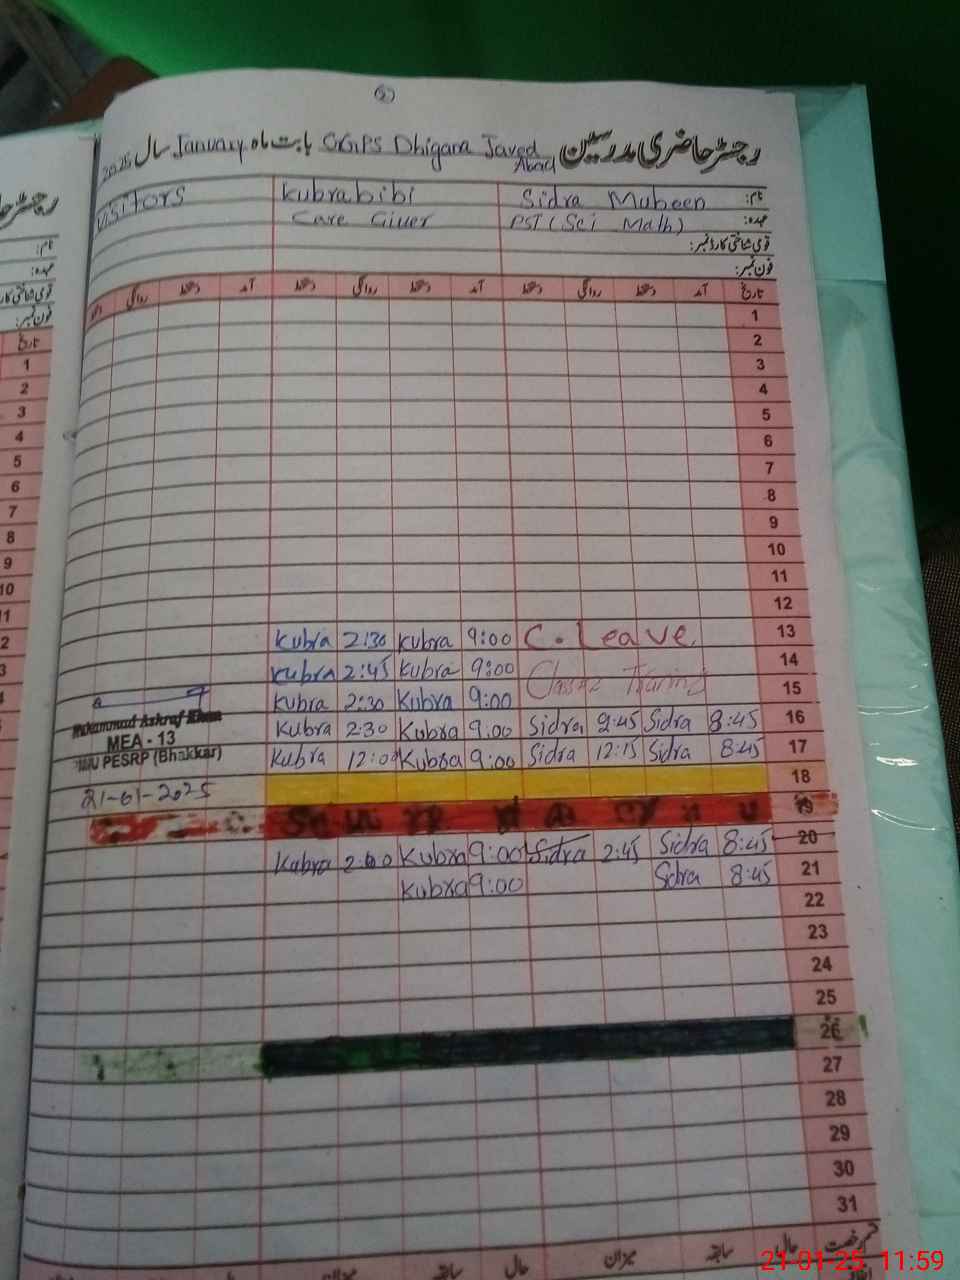 2
رجسٹر حاضری مدرسین GGPS Dhigana Javed Abad بابت ماہ January سال 2025
نام: Sidra Mubeen Kubra bibi VISITORS
عہدہ: PST (Sci Math) Care Giver
قومی شناختی کارڈ نمبر:
فون نمبر:
تاریخ آمد دستخط روانگی دستخط آمد دستخط روانگی دستخط آمد دستخط روانگی
1
2
3
4
5
6
7
8
9
10
11
12
13 C. Leave 9:00 Kubra 2:30 Kubra
14 9:00 Kubra 2:45 Kubra
15 9:00 Kubra 2:30 Kubra
16 8:45 Sidra 2:45 Sidra 9:00 Kubra 2:30 Kubra
17 8:45 Sidra 12:15 Sidra 9:00 Kubra 12:00 Kubra
Muhammad Ashraf Khan
MEA - 13
PMIU PESRP (Bhakkar)
21-01-2025
18
19
20 8:45 Sidra 2:45 Sidra 9:00 Kubra 2:00 Kubra
21 8:45 Sidra 9:00 Kubra
22
23
24
25
26
27
28
29
30
31
رجسٹر حا
نام:
عہدہ:
قومی شناختی کارڈ
فون نمبر:
تاریخ
1
2
3
4
5
6
7
8
9
10
11
2
3
4
حال سابقہ میزان حال سابقہ میزان
21-01-25 11:59